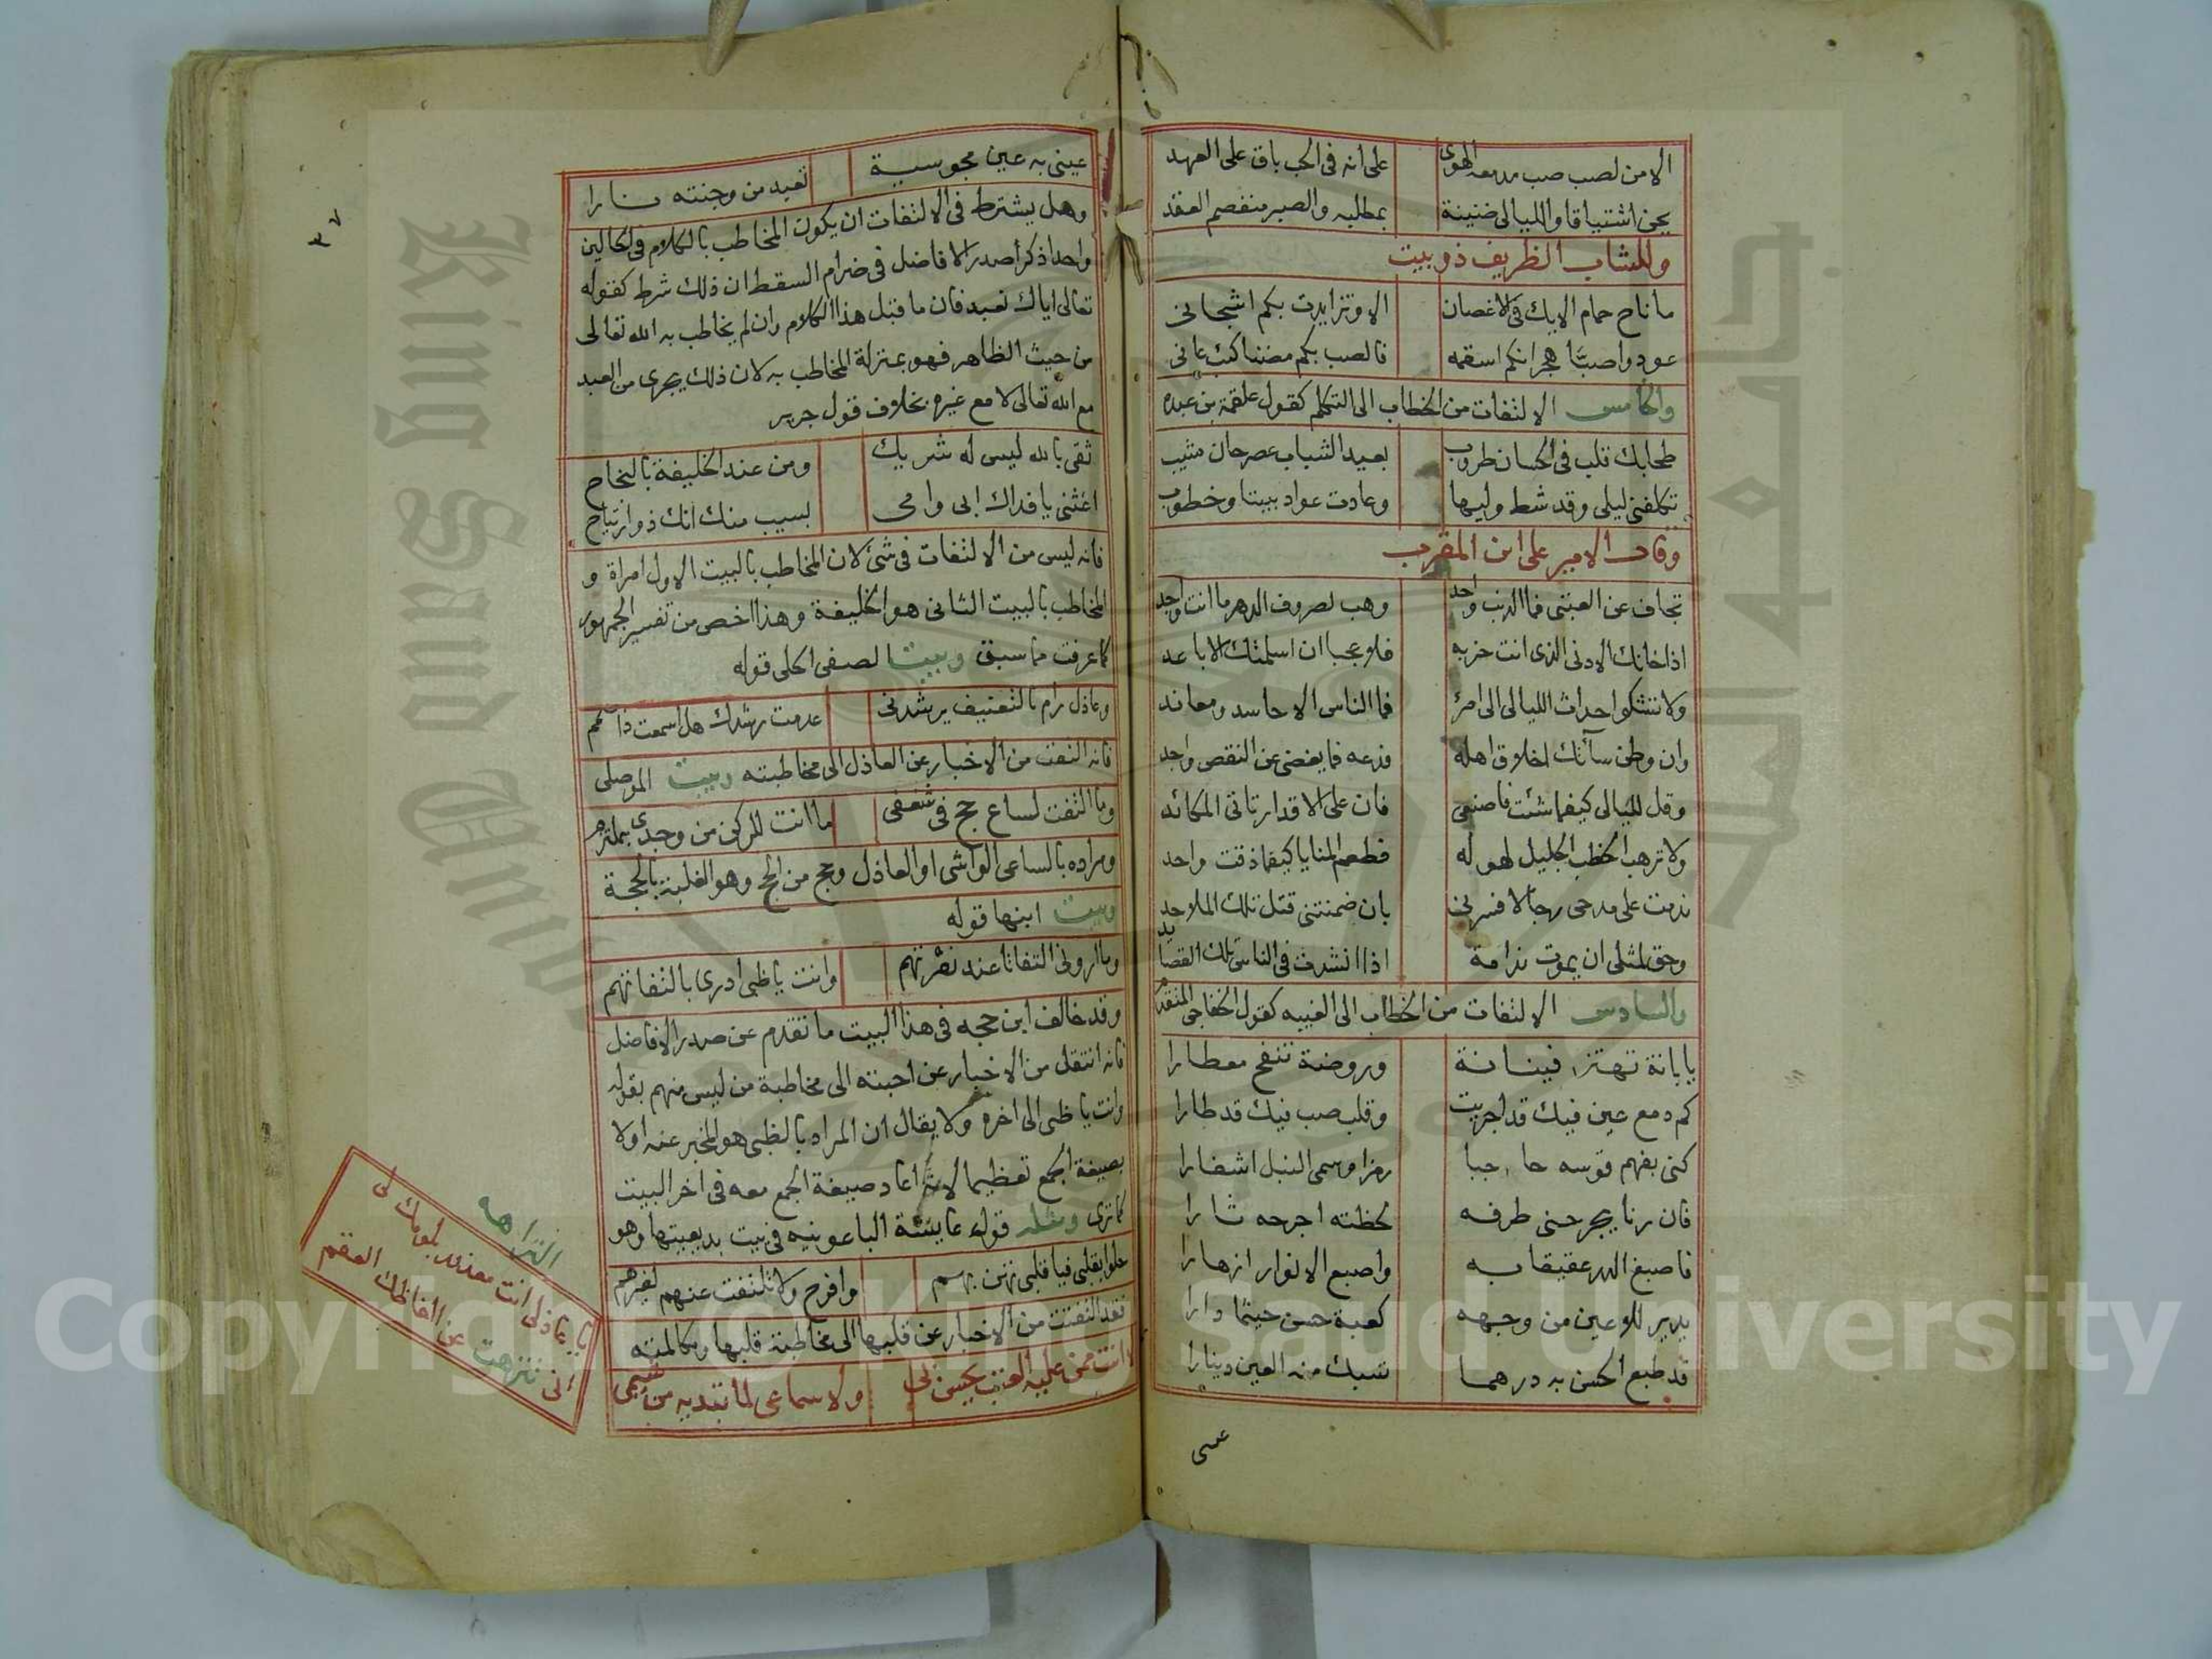 الا من لصب صب مدمعه الهوى على انه فى الحب باق على العهد
يحن اشتياقا والليالى ضنينة بمطلبه والصبر منفصم العقد
وللشاب الظريف ذو بيت
ما ناح حمام الايك فى الاغصان الا وتزايدت بكم اشجانى
عودوا صبًا هجرانكم اسقمه فالصب بكم مضنا كئب عانى
والخامس الالتفات من الخطاب الى التكلم كقول علقمة بن عبده
طحا بك قلب فى الحسان طروب بعيد الشباب عصر حان مشيب
تكلفنى ليلى وقد شط وليها وعادت عواد بيننا وخطوب
وقال الامير على ابن المقرب
تجاف عن العتبى فما الذنب واحد وهب لصروف الدهر ما انت واجد
اذا خانك الادنى الذى انت حزبه فلا عجبا ان اسلمتك الاباعد
ولا تشكو احداث الليالى الى امرئ فما الناس الا حاسد ومعاند
وان وطن سآتك اخلاق اهله فدعه فما يغضى عن النقص واحد
وقل لليالى كيفما شئت فاصنعى فان على الاقدار تاتى المكائد
ولا ترهب الخطب الجليل لهوله فطعم المنايا كيفما ذقت واحد
ندمت على مدحى رجالا فسرنى بان ضمنتنى قتل تلك الملاحد
وحق لمثلى ان يموت ندامة اذا انشدت فى الناس تلك القصايد
والسادس الالتفات من الخطاب الى الغيبه كقول الخفاجى المتقدم
يا بانة تهتز فينانة وروضة تنفح معطارا
كم دمع عين فيك قد اجريت وقلب صب فيك قد طارا
كنى بفهم قوسه حاجبا رمزا وسمى النبل اشفارا
فان رنا يجرحنى طرفه لحظته اجرحه ثارا
فاصبغ الدر عقيقا به واصبع الانوار ازهارا
يدير للاعين من وجهه كعبة حسن حيثما دارا
قد طبع الحسن به درهما تسبك منه العين دينارا
عينى
٣٧
عينى به عين مجوسية تعبد من وجنته نارا
وهل يشترط فى الالتفات ان يكون المخاطب بالكلام فى الحالين
واحدا ذكر صدر الافاضل فى ضرام السقط ان ذلك شرط كقوله
تعالى اياك نعبد فان ما قبل هذا الكلام وان لم يخاطب به الله تعالى
من حيث الظاهر فهو بمنزلة المخاطب به لان ذلك يجرى من العبد
مع الله تعالى لا مع غيره بخلاف قول جرير
ثقى بالله ليس له شريك ومن عند الخليفة بالنجاح
اغثنى يا فداك ابى وامى بسيب منك انك ذو ارتياح
فانه ليس من الالتفات فى شئ لان المخاطب بالبيت الاول امراة و
المخاطب بالبيت الثانى هو الخليفة وهذا اخص من تفسير الجمهور
كما عرفت مما سبق وبيت الصفى الحلى قوله
وعاذل رام بالتعنيف يرشدنى عدمت رشدك هل اسمعت ذا صمم
فانه التفت من الاخبار عن العاذل الى مخاطبته وبيت الموصلى
وما التفت لساع حج فى شغفى ما انت للركن من وجدى بملتزم
ومراده بالساعى الواشى او العاذل وحج من الحج وهو الغلبة بالحجة
وبيت ابنها قوله
وما ارونى التفاتا عند نفرتهم وانت يا ظبى ادرى بالتفاتهم
وقد خالف ابن حجه فى هذا البيت ما تقدم عن صدر الافاضل
فانه انتقل من الاخبار عن احبته الى مخاطبة من ليس منهم بقوله
وانت يا ظبى الى اخره ولا يقال ان المراد بالظبى هو المخبر عنه اولا
بصيغة الجمع تعظيما لانه اعاد صيغة الجمع معه فى اخر البيت
كما ترى ومثله قوله عايشة الباعونيه فى بيت بديعيتها وهو
حلوا بقلبى فيا قلبى تهن بهم وافرح ولا تلتفت عنهم لغيرهم
فقد التفتت من الاخبار عن قلبها الى مخاطبة قلبها ومكالمته
ما انت ممن عليه العتب يحسن لى ولا سماعى لما تبديه من شيمى
النزاهه
يا عاذلى انت معذور بلومك لى
انى تنزهت عن الفاظك العقم
Copyright © King Saud University
King Saud University